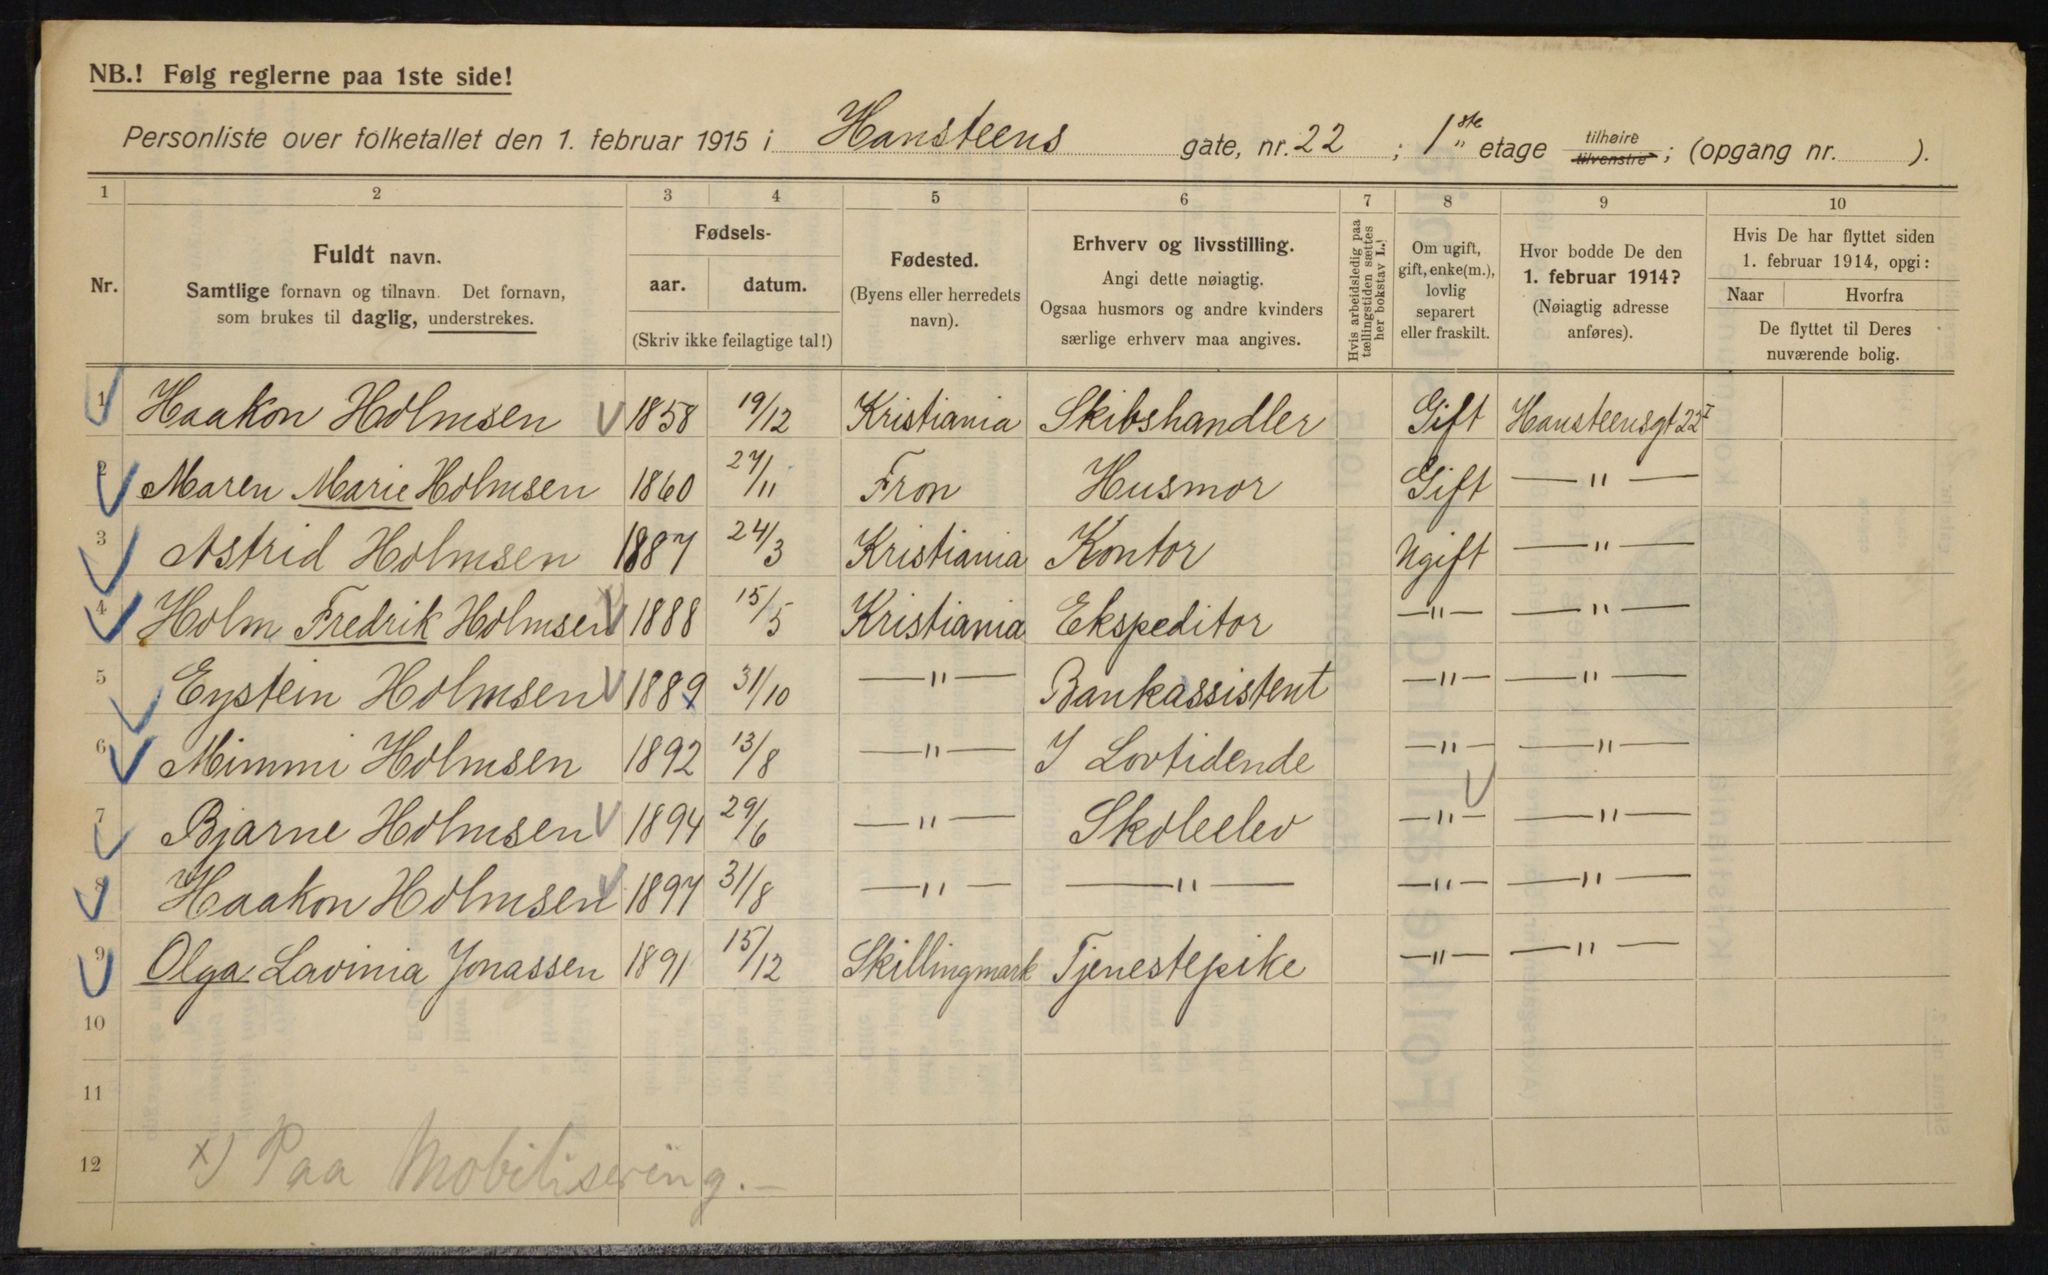 NB.! Følg reglerne paa 1ste side!
Personliste over folketallet den 1. februar 1915 i Hansteens gate, nr. 22 ; 1ste etage tilhøire tilvenstre ; (opgang nr. ).
1 2 3 4 5 6 7 8 9 10
Nr.
Fuldt navn.
Samtlige fornavn og tilnavn. Det fornavn,
som brukes til daglig, understrekes.
Fødsels-
aar. datum.
(Skriv ikke feilagtige tal!)
Fødested.
(Byens eller herredets
navn).
Erhverv og livsstilling.
Angi dette nøiagtig.
Ogsaa husmors og andre kvinders
særlige erhverv maa angives.
Hvis arbeidsledig paa
tællingstiden sættes
her bokstav L.!
Om ugift,
gift, enke(m.),
lovlig
separert
eller fraskilt.
Hvor bodde De den
1. februar 1914?
(Nøiagtig adresse
anføres).
Hvis De har flyttet siden
1. februar 1914, opgi:
Naar Hvorfra
De flyttet til Deres
nuværende bolig.
1 Haakon Holmsen 1858 19/12 Kristiania Skibshandler Gift Hansteensgt 22 I
2 Maren Marie Holmsen 1860 27/11 Fron Husmor Gift —"—
3 Astrid Holmsen 1887 24/3 Kristiania Kontor Ugift —"—
4 Holm Fredrik Holmsen x 1888 15/5 Kristiania Ekspeditor —"— —"—
5 Eystein Holmsen 1889 31/10 —"— Bankassistent —"— —"—
6 Mimmi Holmsen 1892 13/8 —"— I Lovtidende —"— —"—
7 Bjarne Holmsen 1894 29/6 —"— Skoleelev —"— —"—
8 Haakon Holmsen 1897 31/8 —"— —"— —"— —"—
9 Olga Lavinia Jonassen 1891 15/12 Skillingmark Tjenestepike —"— —"—
10
11
12 x) Paa Mobilisering.—